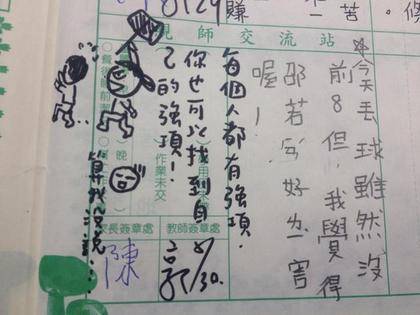 8129
賺
苦。
師交流站
今天丟球雖然沒
前8但,我學得
邵若安好
害
喔!
每個人都有強項,
你也可以找到自
己的強項!
作業未交
晚
家長簽章處
教師簽章處
陳
郭 8/30.